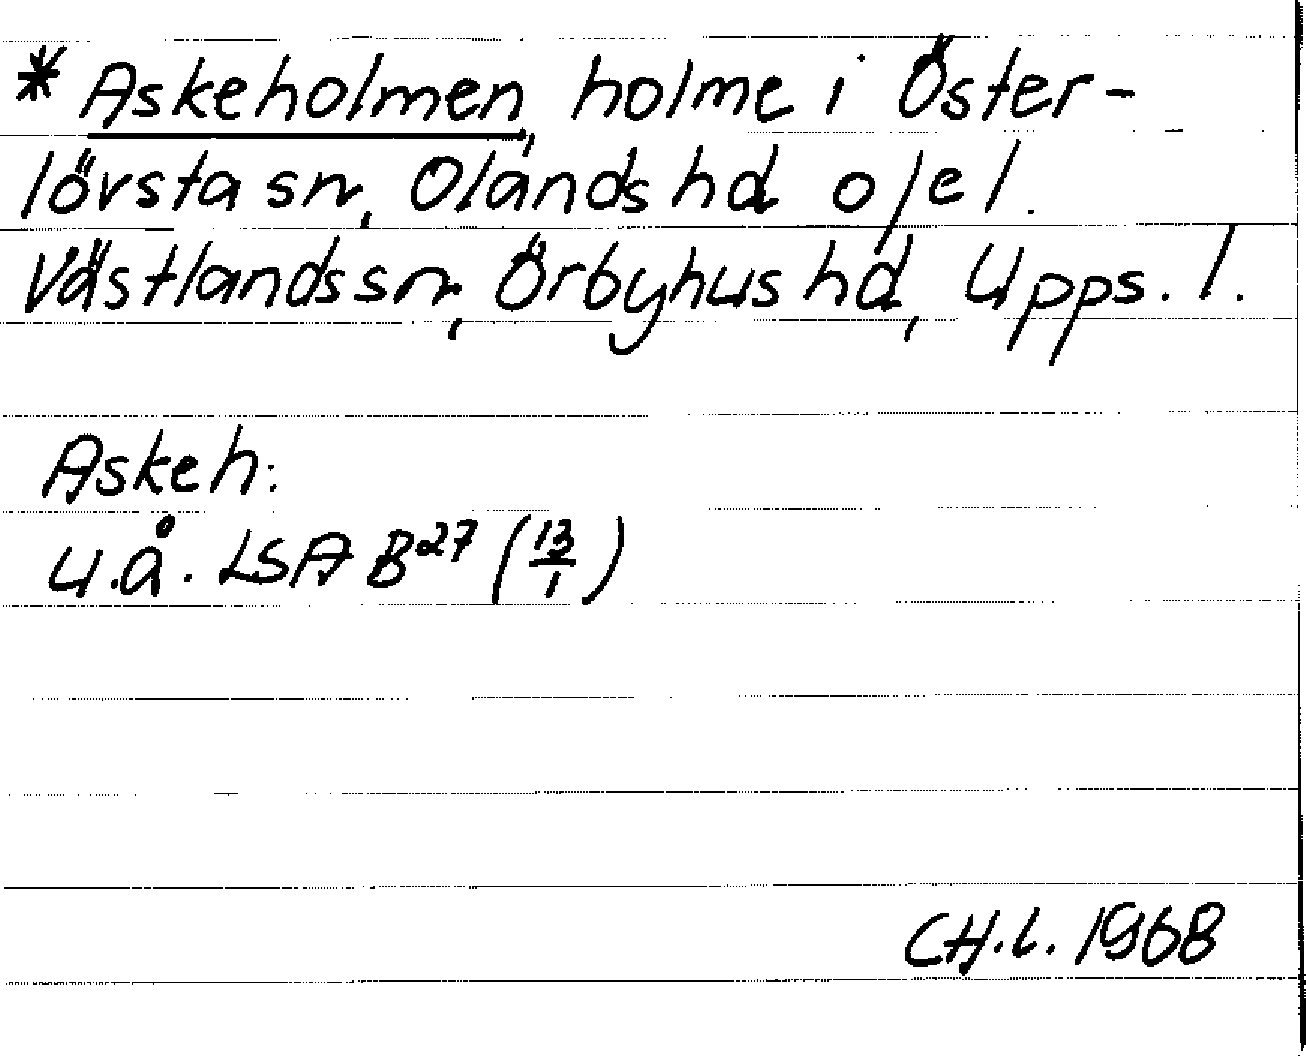 * Askeholmen, holme i Öster-
lövsta sn, Olands hd o/el.
Västlands sn, Örbyhus hd, Upps. l.
Askeh:
u.å. LSA B27 (13/1)
CH.L. 1968